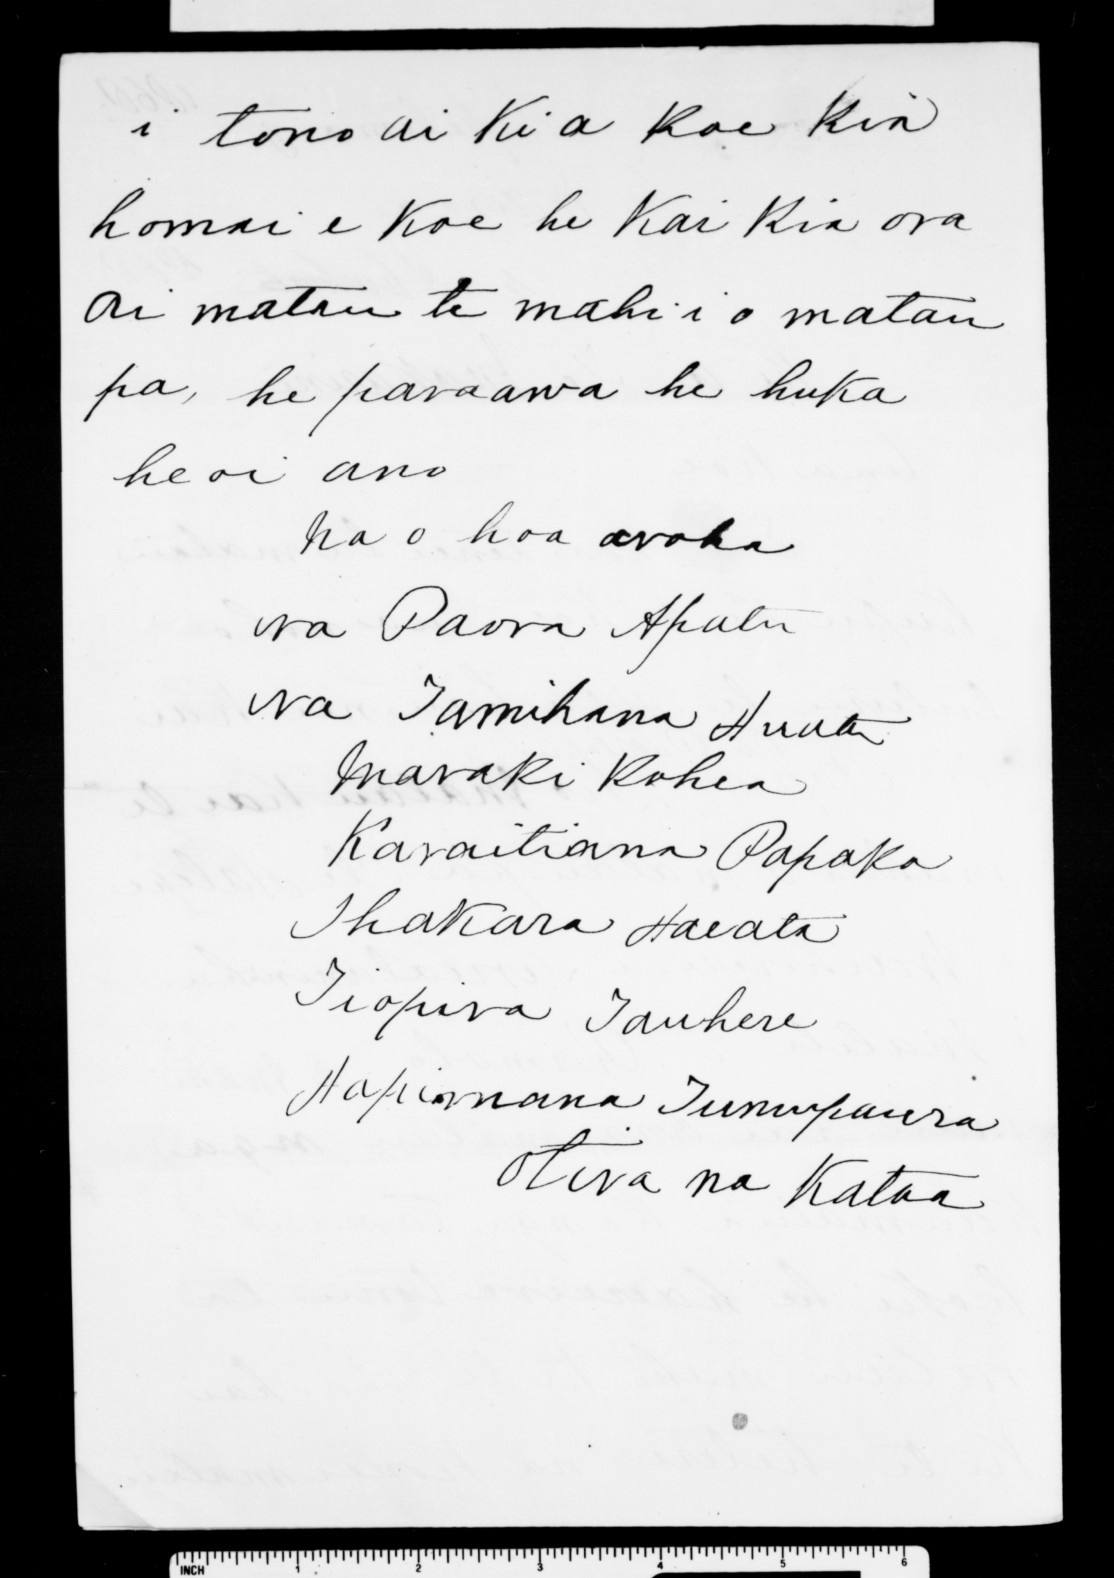 i tono ai Ki a Koe Kia
homai e Koe he Kai Kia ora
ai matau te mahi i o matau
pa, he paraawa he huka
heoi ano
Na o hoa aroha
na Paora Apatu
na Tamihana Huata
Maraki Kohea
Karaitiana Papaka
Ihakara Haeata
Tiopira Tauhere
Hapimana Tunupaura
Otira na Katoa
INCH 1 2 3 4 5 6